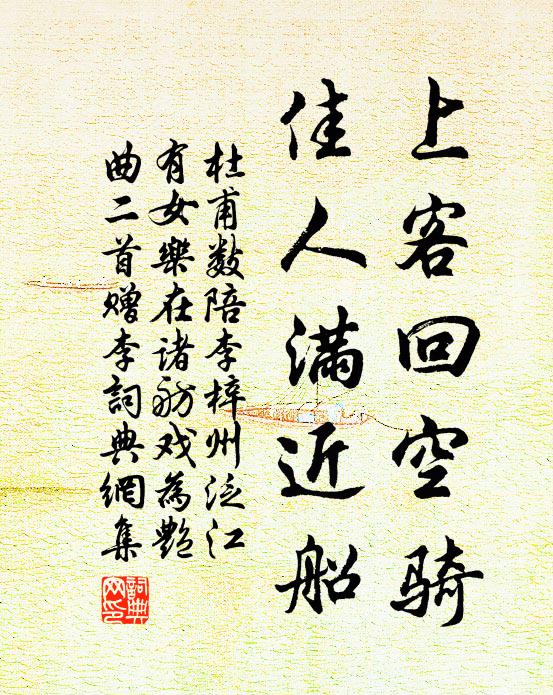 上客回空骑
佳人满近船
杜甫数陪李梓州泛江
有女樂在诸舫戏為艶
曲二首赠李詞典網集
詞典
网印